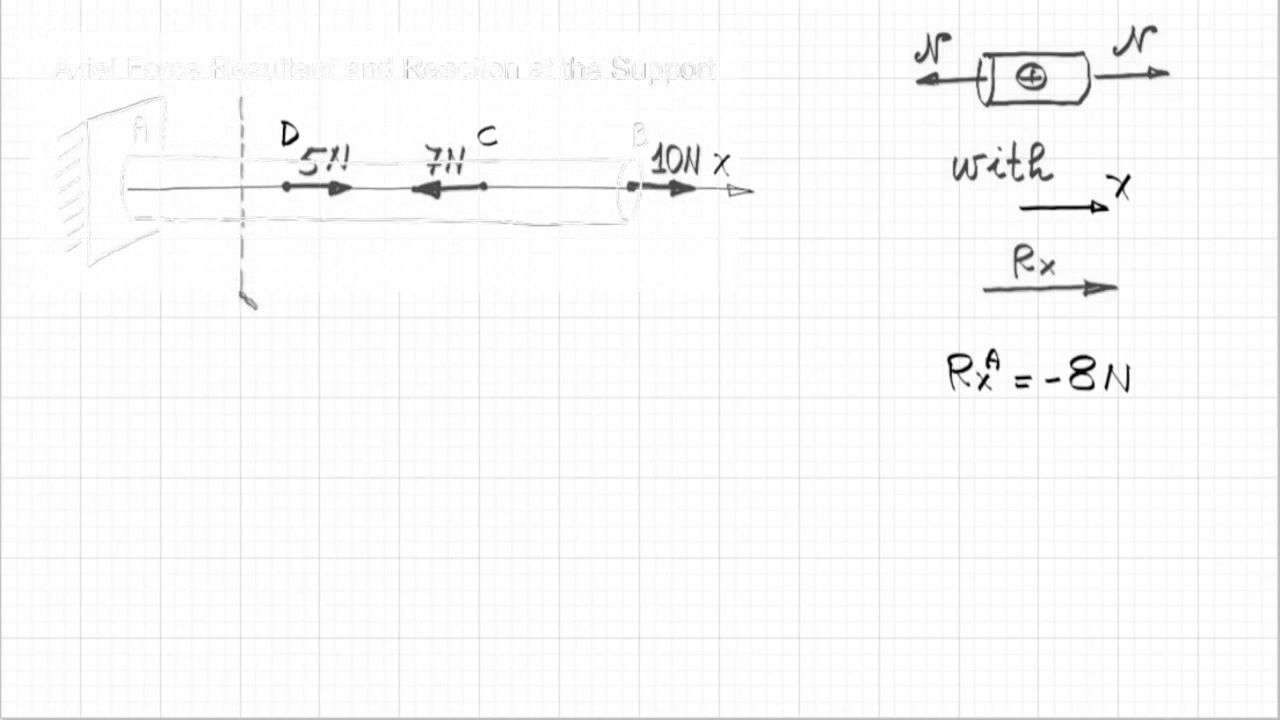 Axial Force Resultant and Reaction at the Support
A
D
5N
7N
C
B
10N
x
N
N
with
x
Rx
RxA = -8N